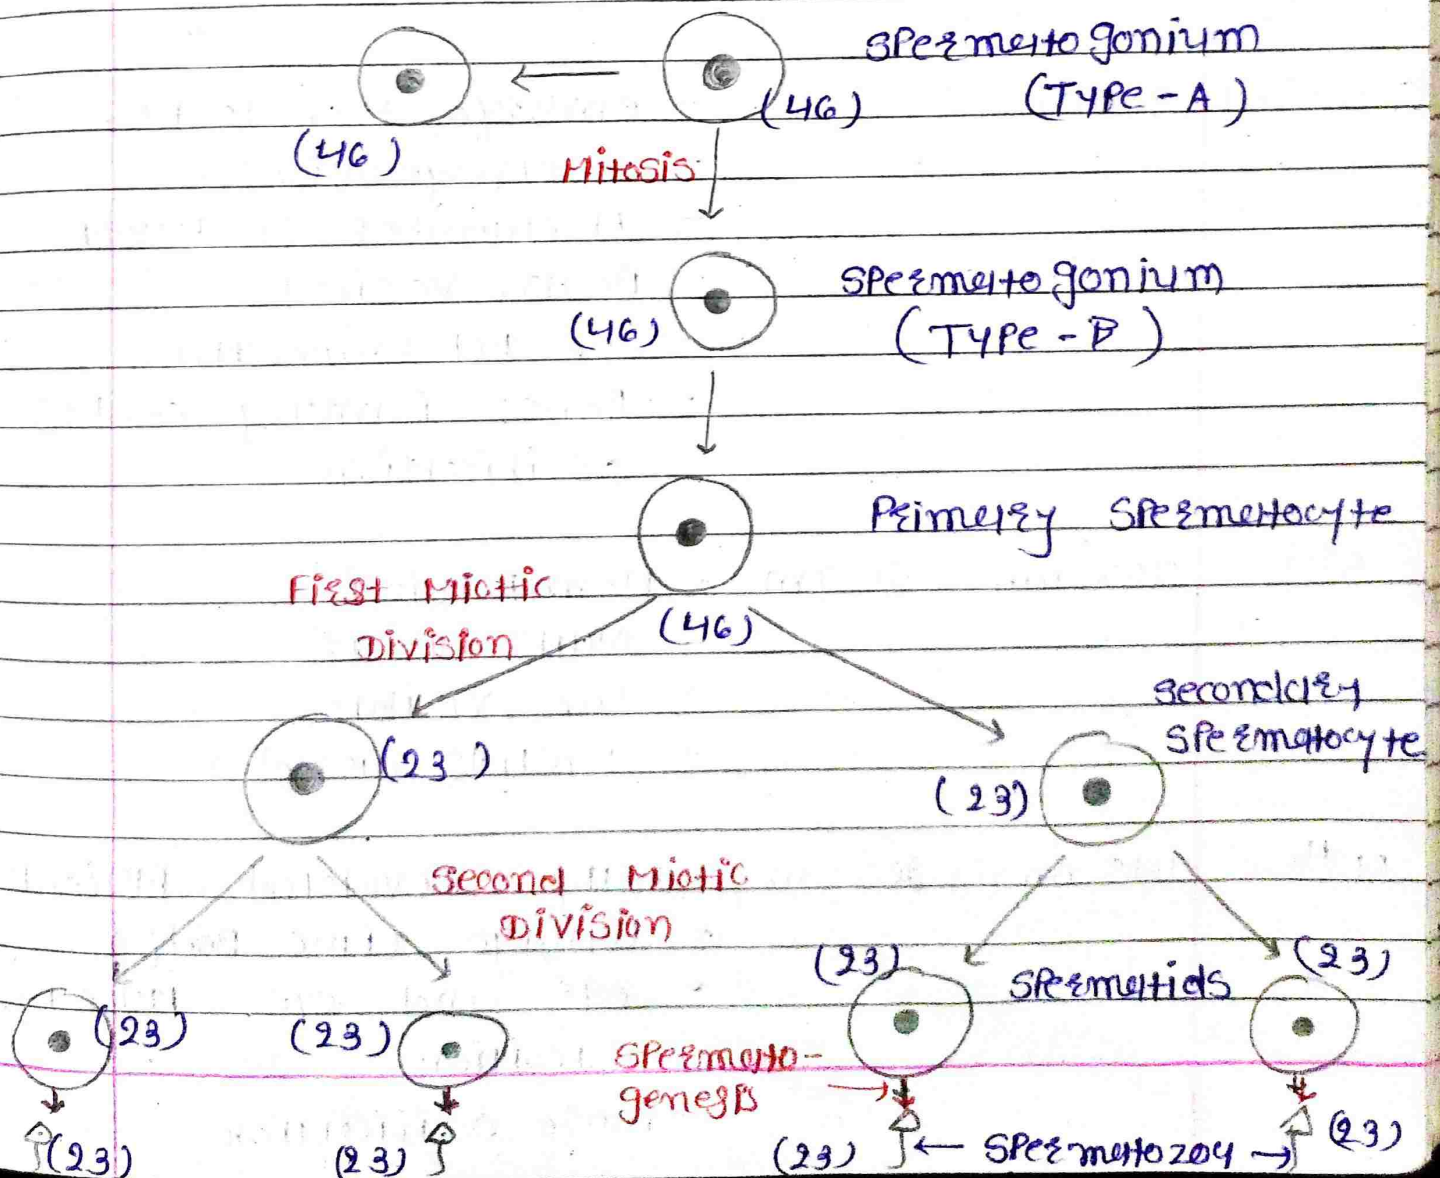 Spermatogonium
(46)
(Type-A)
(46)
Mitosis
Spermatogonium
(46)
(Type-B)
Primary Spermatocyte
First Miotic
(46)
Division
Secondary
Spermatocyte
(23)
(23)
Second Miotic
Division
(23)
(23)
Spermatids
(23)
(23)
Spermato-
genesis
(23)
(23)
(23)
Spermatozoa
(23)